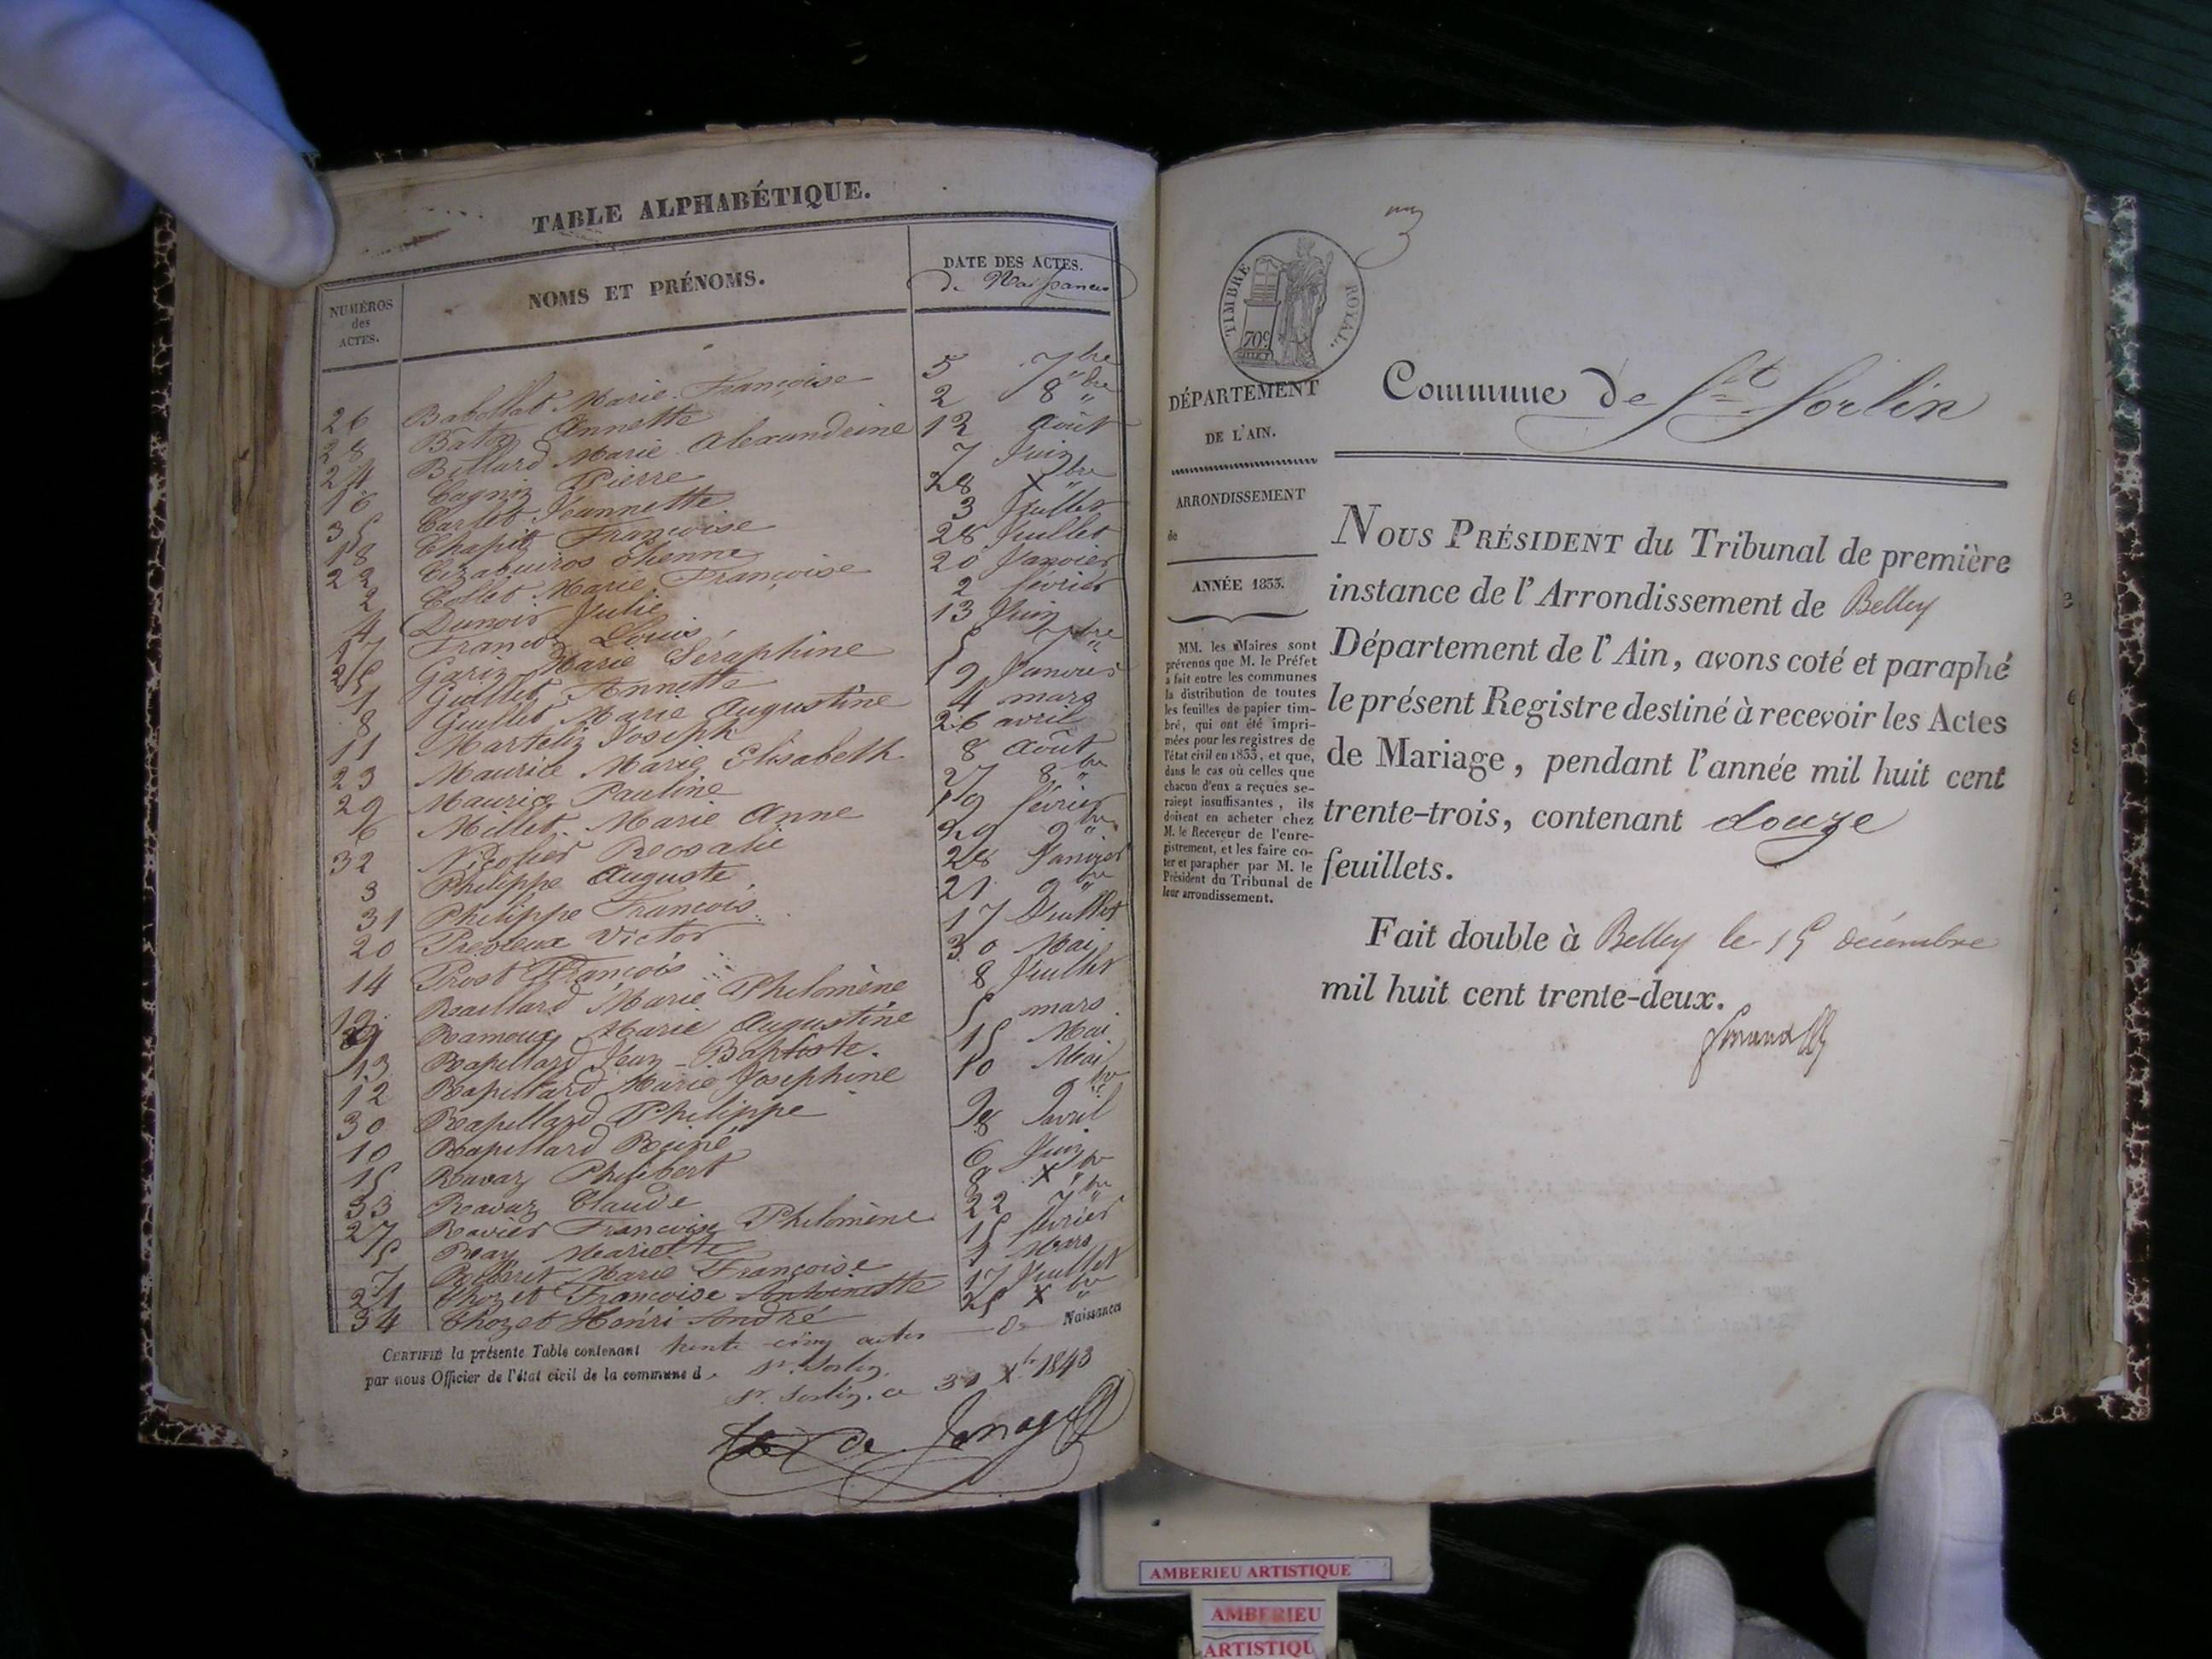 TABLE ALPHABÉTIQUE.
NUMÉROS des ACTES.
NOMS ET PRÉNOMS.
DATE DES ACTES.
de Naissances
26 Babollat Marie Françoise 5 7bre
28 Baton Annette 2 8bre
24 Billard Marie Alexandrine 12 Août
16 Cagnin Pierre 7 Juin
35 Carlet Jeannette 28 Xbre
18 Chapit Françoise 3 Juillet
22 Etienne 28 Juillet
2 Collet Marie Françoise 20 Janvier
4 Dunoir Julie 2 février
17 Franco Louis 13 Juin
25 Garin Marie Séraphine 5 7bre
1 Guillet Annette 19 Janvier
8 Guillet Marie Augustine 4 mars
11 Martelin Joseph 26 avril
23 Maurice Marie Elisabeth 8 Août
29 Maurice Pauline 27 8bre
6 Millet Marie Anne 19 février
32 Nicolier Rosalie 29 9bre
3 Philippe Auguste 28 Janvier
31 Philippe François 21 9bre
20 Previeux Victor 17 Juillet
14 Prost François 30 Mai
19 Raillard Marie Philomène 8 Juillet
9 Ramoux Marie Augustine 5 mars
13 Rapillard Jean-Baptiste. 15 Mai
12 Rapillard Marie Josephine 10 Mai
30 Rapillard Philippe 9bre
10 Rapillard Reiné 8 avril
15 Ravaz Philibert 6 Juin
33 Ravaz Claude 8 Xbre
27 Ravier Françoise Philomène 22 7bre
5 Ray Mariette 15 février
7 Marie Françoise 1 Mars
21 Thozet Françoise Antoinette 17 Juillet
34 Thozet Henri André 25 Xbre
CERTIFIÉ la présente Table contenant trente cinq actes De Naissances
par nous Officier de l'état civil de la commune de St. Sorlin.
St. Sorlin, ce 30 Xbre 1843
TIMBRE ROYAL.
70c
DÉPARTEMENT
DE L'AIN.
ARRONDISSEMENT
de
ANNÉE 1833.
MM. les Maires sont
prévenus que M. le Préfet
a fait entre les communes
la distribution de toutes
les feuilles de papier tim-
bré, qui ont été impri-
mées pour les registres de
l'état civil en 1833, et que,
dans le cas où celles que
chacun d'eux a reçues se-
raient insuffisantes, ils
doivent en acheter chez
M. le Receveur de l'enre-
gistrement, et les faire co-
ter et parapher par M. le
Président du Tribunal de
leur arrondissement.
Commune de St Sorlin
NOUS PRÉSIDENT du Tribunal de première
instance de l'Arrondissement de Belley
Département de l'Ain, avons coté et paraphé
le présent Registre destiné à recevoir les Actes
de Mariage, pendant l'année mil huit cent
trente-trois, contenant douze
feuillets.
Fait double à Belley le 15 décembre
mil huit cent trente-deux.
AMBERIEU ARTISTIQUE
AMBERIEU
ARTISTIQU